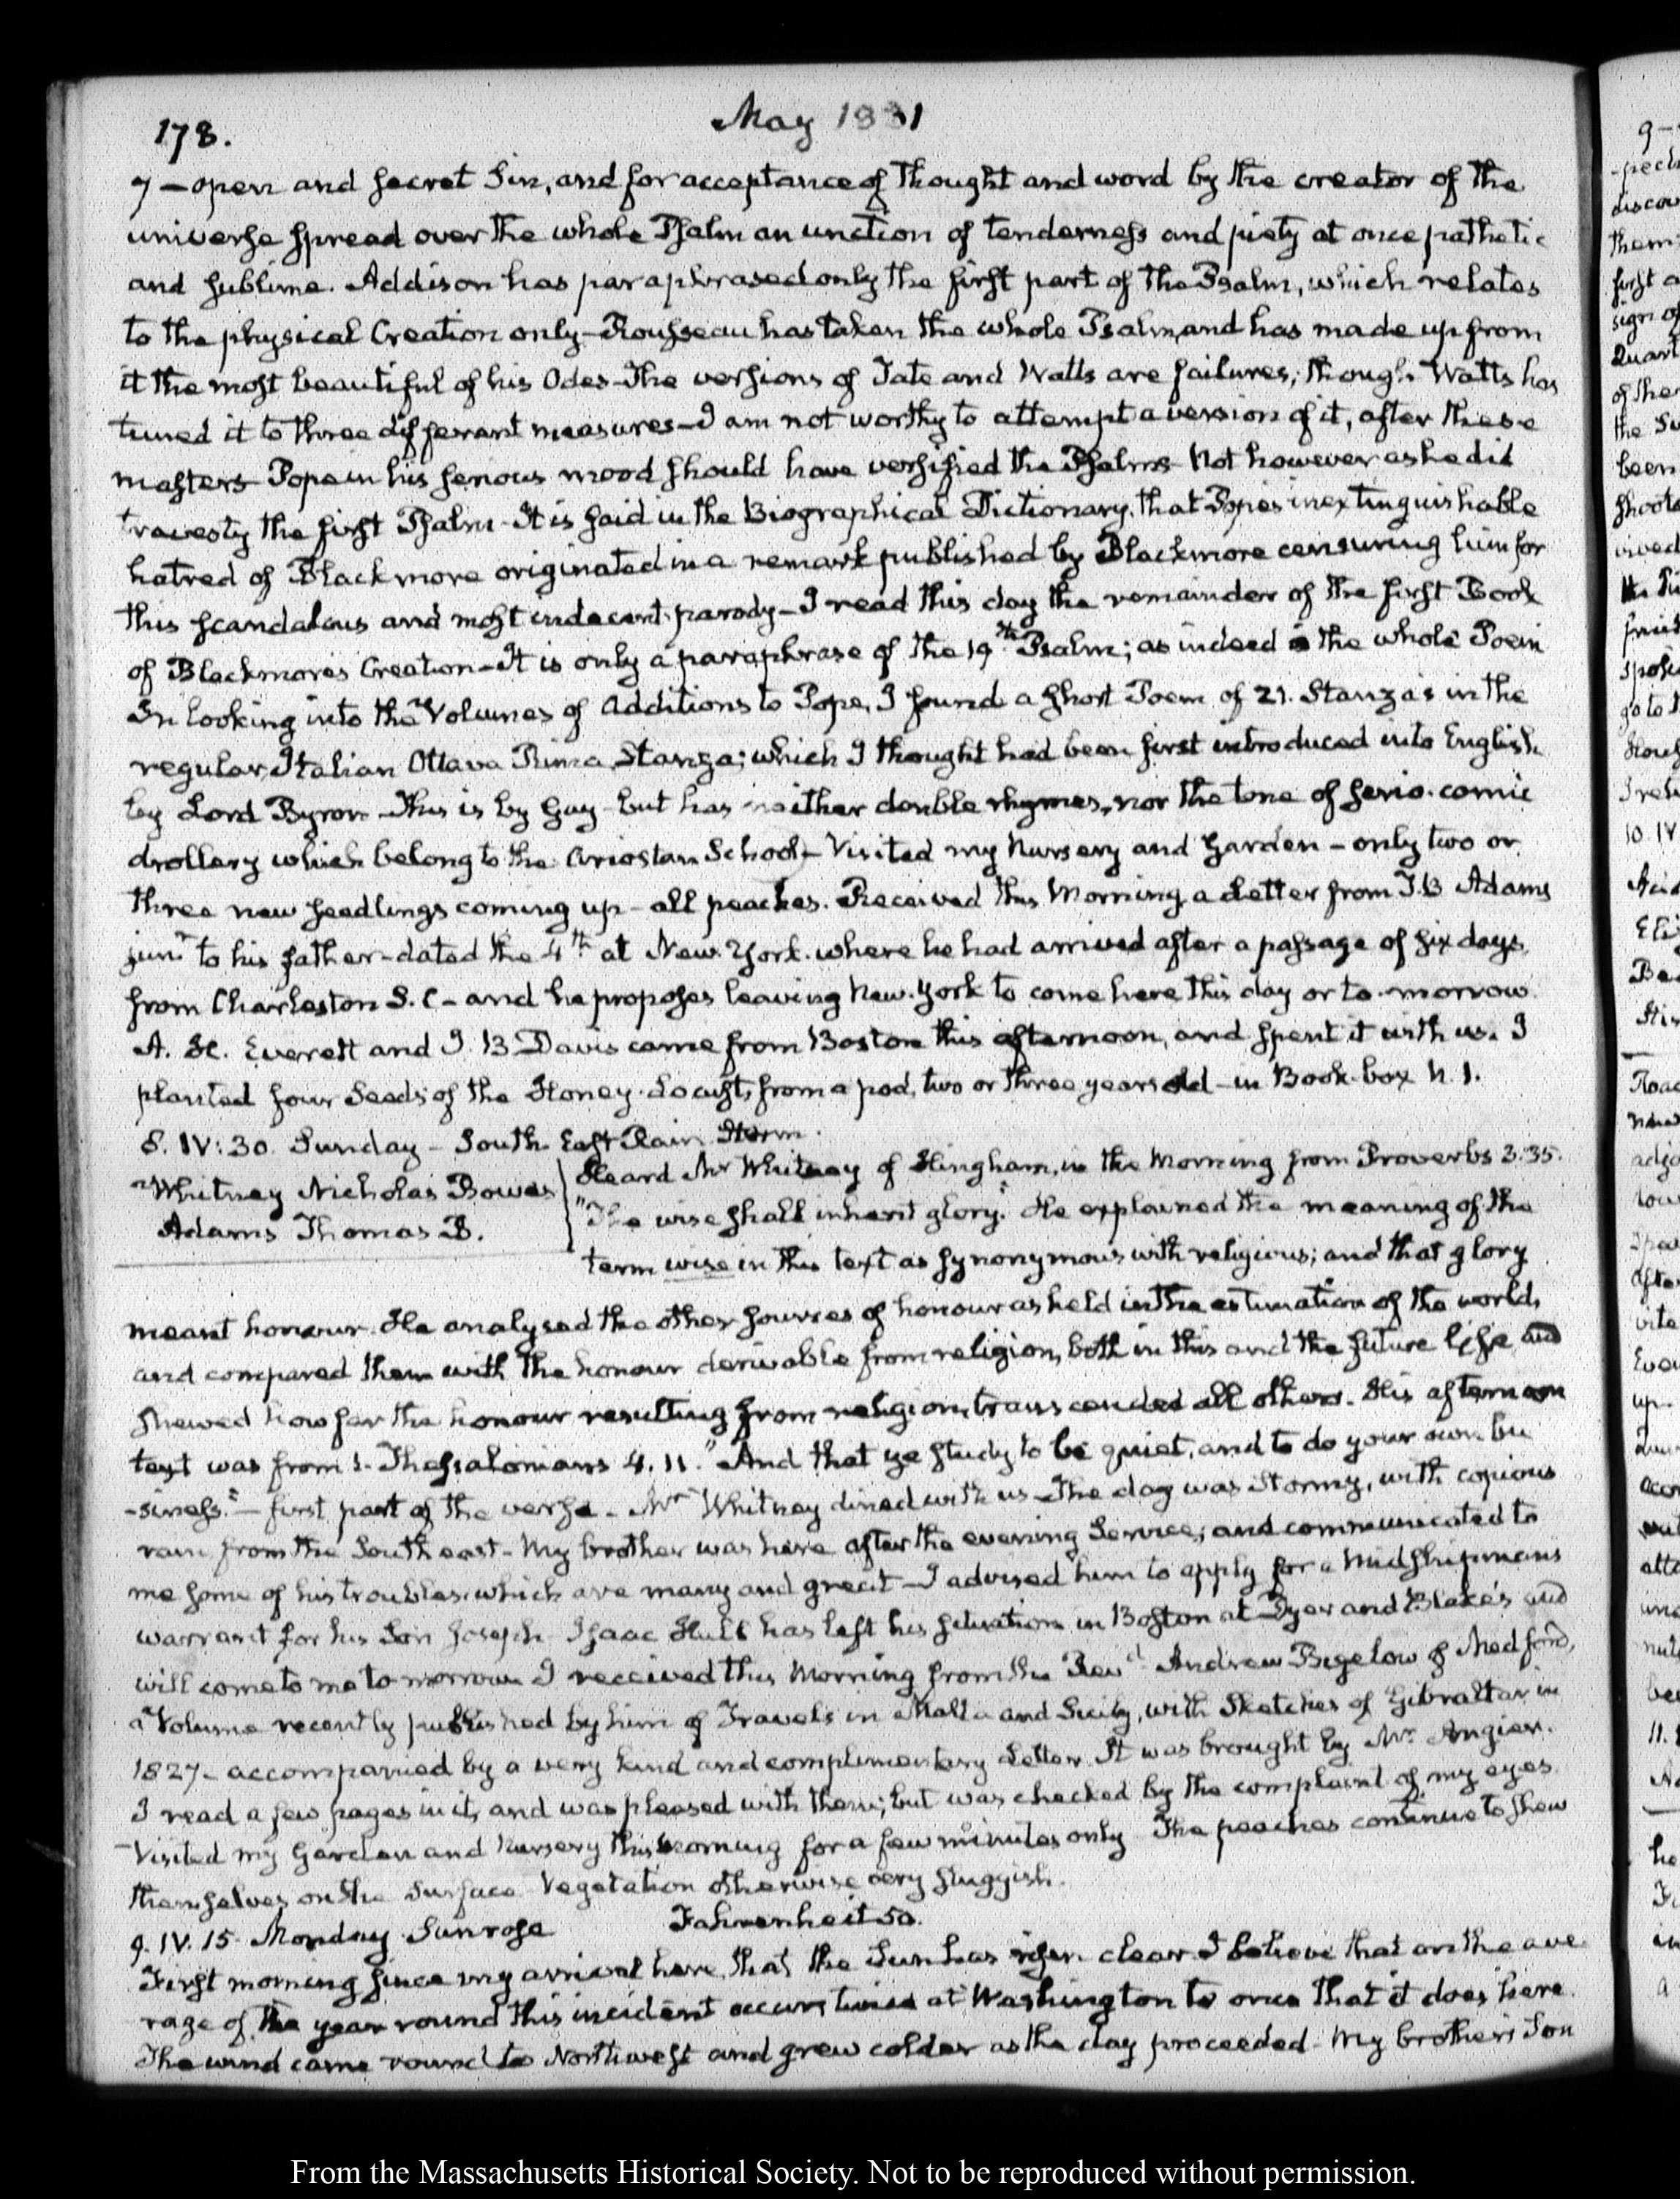 178.
May 1831
7 — open and secret Sin, and for acceptance of thought and word by the creator of the
universe spread over the whole Psalm an unction of tenderness and piety at once pathetic
and sublime. Addison has paraphrased only the first part of the Psalm, which relates
to the physical Creation only — Rousseau has taken the whole Psalm, and has made up from
it the most beautiful of his Odes — The versions of Tate and Watts are failures; though Watts has
tuned it to three different measures — I am not worthy to attempt a version of it, after these
masters — Pope in his serious mood should have versified the Psalms — Not however as he did
travesty the first Psalm — It is said in the Biographical Dictionary, that Pope's inextinguishable
hatred of Blackmore originated in a remark published by Blackmore censuring him for
this scandalous and most indecent parody — I read this day the remainder of the first Book
of Blackmore's Creation — It is only a paraphrase of the 19th Psalm; as indeed is the whole Poem
In looking into the Volumes of Additions to Pope, I found a short Poem of 21. Stanza's in the
regular Italian Ottava Rima Stanza; which I thought had been first introduced into English
by Lord Byron — This is by Gay — but has neither double rhymes, nor the tone of serio-comic
drollery which belong to the Ariostan School — Visited my Nursery and Garden — only two or
three new seedlings coming up — all peaches. Received this Morning a Letter from T. B Adams
junr to his father — dated the 4th at New York. where he had arrived after a passage of six days
from Charleston S. C — and he proposes leaving New York to come here this day or to-morrow
A. H. Everett and J. B Davis came from Boston this afternoon, and spent it with us. I
planted four Seeds of the Honey-Locust, from a pod, two or three years old — in Book-box N. 1.
8. IV: 30. Sunday — South East Rain Storm.
Whitney Nicholas Bowes
Adams Thomas B.
Heard Mr Whitney of Hingham, in the Morning from Proverbs 3. 35.
"The wise shall inherit glory." He explained the meaning of the
term wise in this text as synonymous with religious; and that glory
meant honour. He analysed the other sources of honour as held in the estimation of the world,
and compared them with the honour derivable from religion, both in this and the future life, and
shewed how far the honour resulting from religion, transcended all others. His afternoon
text was from 1. Thessalonians 4. 11. "And that ye study to be quiet, and to do your own bu
-siness." — first part of the verse. — Mr Whitney dined with us — The day was Stormy, with copious
rain from the South east — My brother was here after the evening Service; and communicated to
me some of his troubles which are many and great — I advised him to apply for a Midshipman's
warrant for his Son Joseph — Isaac Hull has left his situation in Boston at Dyer and Blake's and
will come to me to morrow I received this Morning from the Revd Andrew Bigelow of Medford,
a Volume recently published by him of Travels in Malta and Sicily, with Sketches of Gibraltar in
1827 — accompanied by a very kind and complimentary Letter. It was brought by Mr Angier.
I read a few pages in it, and was pleased with them; but was checked by the complaint of my eyes
Visited my Garden and Nursery this Morning for a few minutes only The peaches continue to shew
themselves on the surface Vegetation otherwise very sluggish.
9. IV. 15 Monday Sun rose Fahrenheit 50.
First morning since my arrival here, that the Sun has risen clear I believe that on the ave
rage of the year round this incident occurs twice at Washington to once that it does here.
The wind came round to Northwest and grew colder as the day proceeded — My brother's Son
From the Massachusetts Historical Society. Not to be reproduced without permission.